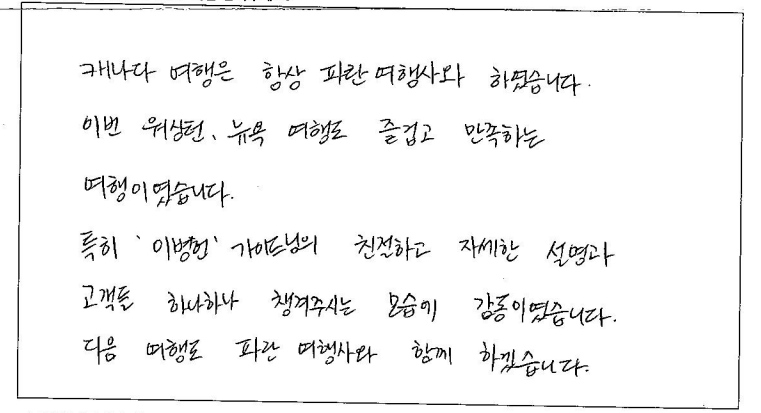 캐나다 여행은 항상 파란여행사와 하였습니다.
이번 워싱턴, 뉴욕 여행도 즐겁고 만족하는
여행이였습니다.
특히 '이병헌' 가이드님의 친절하고 자세한 설명과
고객들 하나하나 챙겨주시는 모습에 감동이였습니다.
다음 여행도 파란 여행사와 함께 하겠습니다.